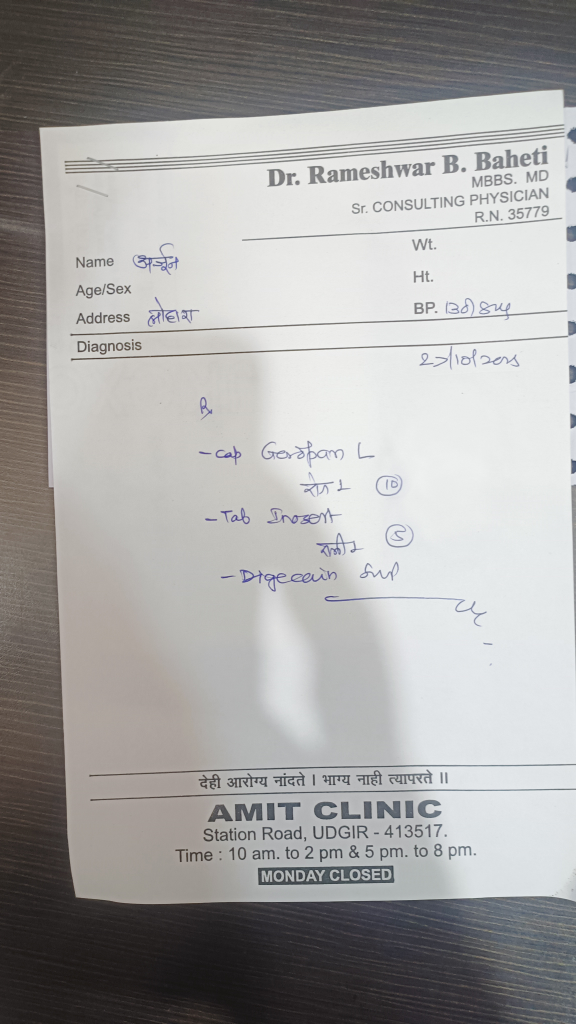 Dr. Rameshwar B. Baheti
MBBS. MD
Sr. CONSULTING PHYSICIAN
R.N. 35779
Name अर्जुन
Wt.
Age/Sex
Ht.
Address लोहारा
BP. 130/84
Diagnosis
27/10/2025
Rx
- Cap Gerdpan L
रोज 1 (10)
- Tab
रात्री 1 (5)
- Syp
देही आरोग्य नांदते । भाग्य नाही त्यापरते ॥
AMIT CLINIC
Station Road, UDGIR - 413517.
Time : 10 am. to 2 pm & 5 pm. to 8 pm.
MONDAY CLOSED